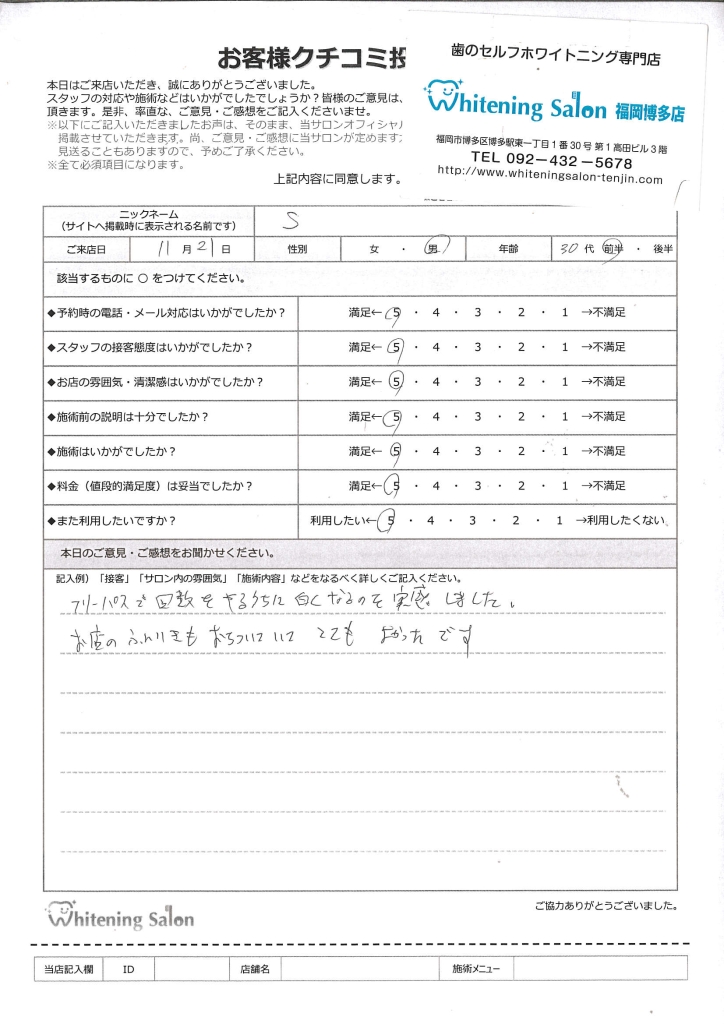 お客様クチコミ投
歯のセルフホワイトニング専門店
Whitening Salon 福岡博多店
福岡市博多区博多駅東一丁目1番30号 第1高田ビル3階
TEL 092-432-5678
http://www.whiteningsalon-tenjin.com
本日はご来店いただき、誠にありがとうございました。
スタッフの対応や施術などはいかがでしたでしょうか？皆様のご意見は、
頂きます。是非、率直な、ご意見・ご感想をご記入くださいませ。
※以下にご記入いただきましたお声は、そのまま、当サロンオフィシャル
掲載させていただきます。尚、ご意見・ご感想に当サロンが定めます
見送ることもありますので、予めご了承ください。
※全て必須項目になります。
上記内容に同意します。
ニックネーム
（サイトへ掲載時に表示される名前です） S
ご来店日 11 月 21 日 性別 女 ・ 男 年齢 30 代 前半 ・ 後半
該当するものに ○ をつけてください。
◆予約時の電話・メール対応はいかがでしたか？ 満足← 5 ・ 4 ・ 3 ・ 2 ・ 1 →不満足
◆スタッフの接客態度はいかがでしたか？ 満足← 5 ・ 4 ・ 3 ・ 2 ・ 1 →不満足
◆お店の雰囲気・清潔感はいかがでしたか？ 満足← 5 ・ 4 ・ 3 ・ 2 ・ 1 →不満足
◆施術前の説明は十分でしたか？ 満足← 5 ・ 4 ・ 3 ・ 2 ・ 1 →不満足
◆施術はいかがでしたか？ 満足← 5 ・ 4 ・ 3 ・ 2 ・ 1 →不満足
◆料金（値段的満足度）は妥当でしたか？ 満足← 5 ・ 4 ・ 3 ・ 2 ・ 1 →不満足
◆また利用したいですか？ 利用したい← 5 ・ 4 ・ 3 ・ 2 ・ 1 →利用したくない
本日のご意見・ご感想をお聞かせください。
記入例）「接客」「サロン内の雰囲気」「施術内容」などをなるべく詳しくご記入ください。
フリーパスで回数をやるうちに白くなるのを実感しました。
お店のふんいきもおちついていてとてもよかったです
Whitening Salon
ご協力ありがとうございました。
当店記入欄 ID 店舗名 施術メニュー